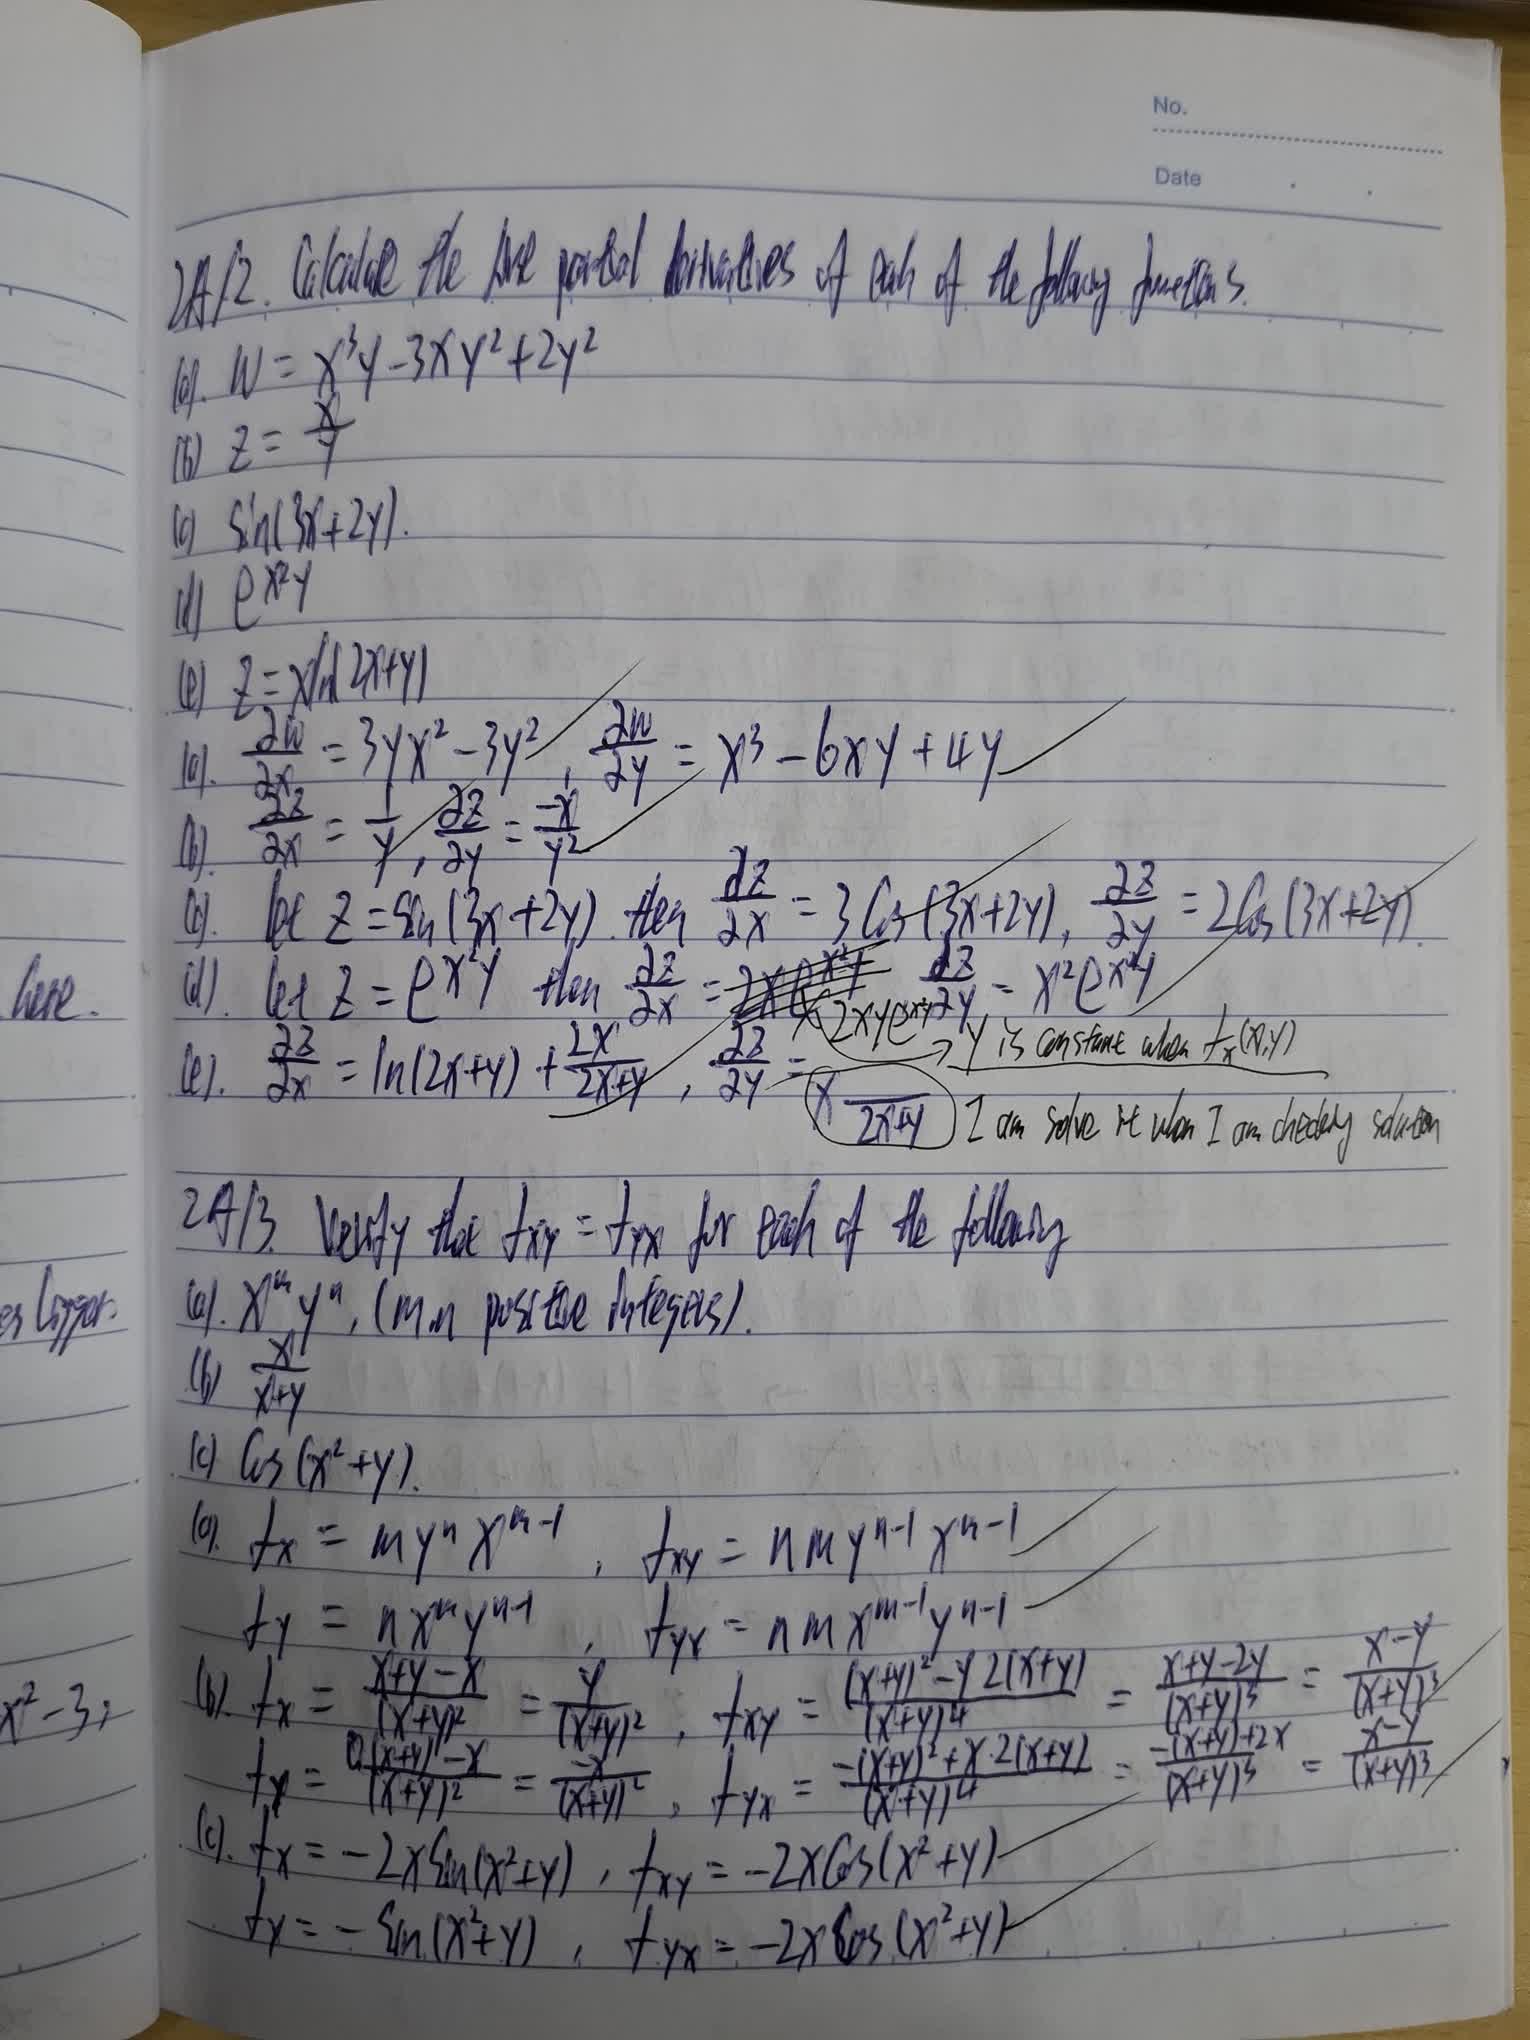 No.
Date
2A/2. Calculate the five partial derivatives of each of the following functions.
(a). W = x³y - 3xy² + 2y²
(b) z = x/y
(c) sin(3x+2y).
(d) e^(x²y)
(e) z = x ln(2x+y)
(a). ∂w/∂x = 3yx² - 3y², ∂w/∂y = x³ - 6xy + 4y
(b). ∂z/∂x = 1/y, ∂z/∂y = -x/y²
(c). let z = sin(3x+2y). then ∂z/∂x = 3cos(3x+2y), ∂z/∂y = 2cos(3x+2y).
here.
(d). let z = e^(x²y) then ∂z/∂x = 2xye^(x²y) ∂z/∂y = x²e^(x²y)
y is constant when f_x(x,y)
(e). ∂z/∂x = ln(2x+y) + 2x/(2x+y), ∂z/∂y = x/(2x+y)
I am solve it when I am checking solution
2A/3. Verify that f_xy = f_yx for each of the following
(a). x^m y^n, (m,n positive integers).
bigger.
(b) x/(x+y)
(c) cos(x²+y).
(a). f_x = m y^n x^(m-1), f_xy = n m y^(n-1) x^(m-1)
f_y = n x^m y^(n-1), f_yx = n m x^(m-1) y^(n-1)
x² - 3;
(b). f_x = (x+y-x)/(x+y)² = y/(x+y)², f_xy = ((x+y)² - y2(x+y))/(x+y)⁴ = (x+y-2y)/(x+y)³ = (x-y)/(x+y)³
f_y = (0(x+y)-x)/(x+y)² = -x/(x+y)², f_yx = (-(x+y)²+x·2(x+y))/(x+y)⁴ = (-(x+y)+2x)/(x+y)³ = (x-y)/(x+y)³
(c). f_x = -2x sin(x²+y), f_xy = -2x cos(x²+y)
f_y = -sin(x²+y), f_yx = -2x cos(x²+y)